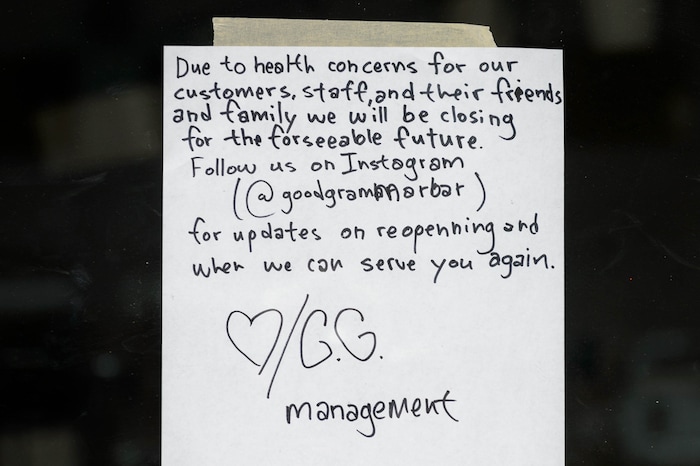 Due to health concerns for our
customers, staff, and their friends
and family we will be closing
for the forseeable future.
Follow us on Instagram
(@goodgrammarbar)
for updates on reopenning and
when we can serve you again.
♡/G.G.
management